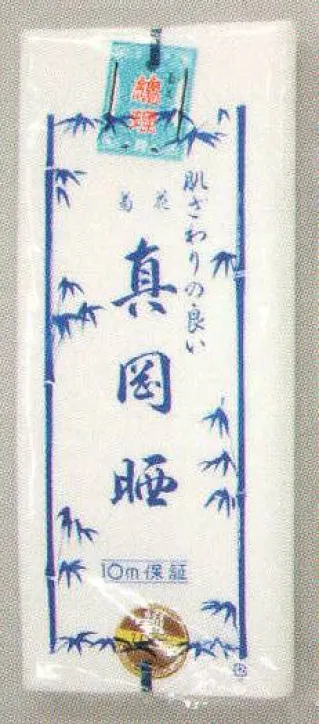 總理
肌ざわりの良い
菊花
真岡晒
10m保証